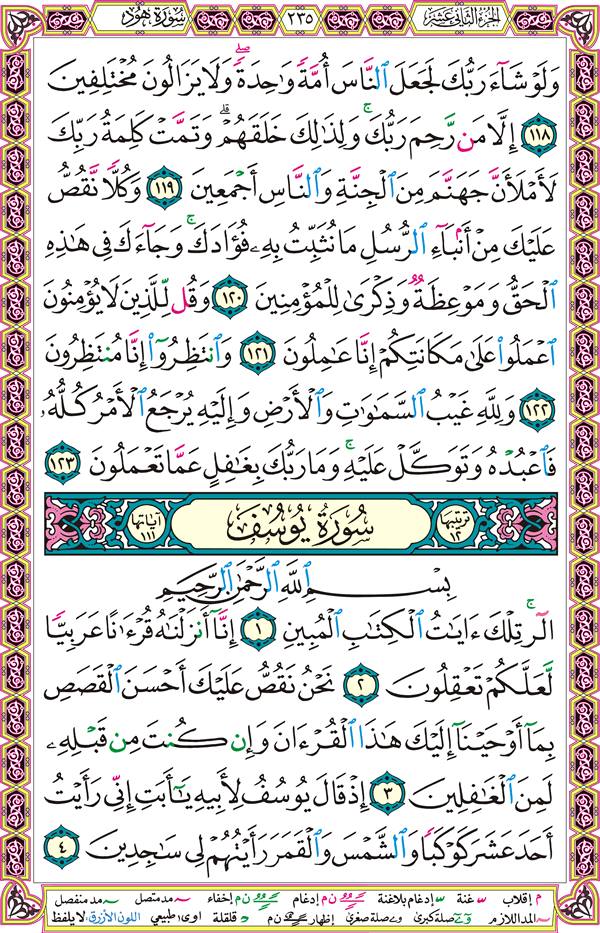 الجزء الثاني عشر ٢٣٥ سورة هود
وَلَوْ شَآءَ رَبُّكَ لَجَعَلَ ٱلنَّاسَ أُمَّةً وَٰحِدَةً ۖ وَلَا يَزَالُونَ مُخْتَلِفِينَ
١١٨ إِلَّا مَن رَّحِمَ رَبُّكَ ۚ وَلِذَٰلِكَ خَلَقَهُمْ ۗ وَتَمَّتْ كَلِمَةُ رَبِّكَ
لَأَمْلَأَنَّ جَهَنَّمَ مِنَ ٱلْجِنَّةِ وَٱلنَّاسِ أَجْمَعِينَ ١١٩ وَكُلًّا نَّقُصُّ
عَلَيْكَ مِنْ أَنۢبَآءِ ٱلرُّسُلِ مَا نُثَبِّتُ بِهِۦ فُؤَادَكَ ۚ وَجَآءَكَ فِى هَٰذِهِ
ٱلْحَقُّ وَمَوْعِظَةٌ وَذِكْرَىٰ لِلْمُؤْمِنِينَ ١٢٠ وَقُل لِّلَّذِينَ لَا يُؤْمِنُونَ
ٱعْمَلُوا۟ عَلَىٰ مَكَانَتِكُمْ إِنَّا عَٰمِلُونَ ١٢١ وَٱنتَظِرُوٓا۟ إِنَّا مُنتَظِرُونَ
١٢٢ وَلِلَّهِ غَيْبُ ٱلسَّمَٰوَٰتِ وَٱلْأَرْضِ وَإِلَيْهِ يُرْجَعُ ٱلْأَمْرُ كُلُّهُۥ
فَٱعْبُدْهُ وَتَوَكَّلْ عَلَيْهِ ۚ وَمَا رَبُّكَ بِغَٰفِلٍ عَمَّا تَعْمَلُونَ ١٢٣
ترتيبها ١٢ سُورَةُ يُوسُفَ آياتها ١١١
بِسْمِ ٱللَّهِ ٱلرَّحْمَٰنِ ٱلرَّحِيمِ
الٓر ۚ تِلْكَ ءَايَٰتُ ٱلْكِتَٰبِ ٱلْمُبِينِ ١ إِنَّآ أَنزَلْنَٰهُ قُرْءَٰنًا عَرَبِيًّا
لَّعَلَّكُمْ تَعْقِلُونَ ٢ نَحْنُ نَقُصُّ عَلَيْكَ أَحْسَنَ ٱلْقَصَصِ
بِمَآ أَوْحَيْنَآ إِلَيْكَ هَٰذَا ٱلْقُرْءَانَ وَإِن كُنتَ مِن قَبْلِهِۦ
لَمِنَ ٱلْغَٰفِلِينَ ٣ إِذْ قَالَ يُوسُفُ لِأَبِيهِ يَٰٓأَبَتِ إِنِّى رَأَيْتُ
أَحَدَ عَشَرَ كَوْكَبًا وَٱلشَّمْسَ وَٱلْقَمَرَ رَأَيْتُهُمْ لِى سَٰجِدِينَ ٤
م إقلاب غنة إدغام بلاغنة ن م إدغام ن م إخفاء مد متصل مد منفصل
المد اللازم صلة كبرى صلة صغرى إظهار ن م قلقلة اوى طبيعي اللون الأزرق: لا يلفظ